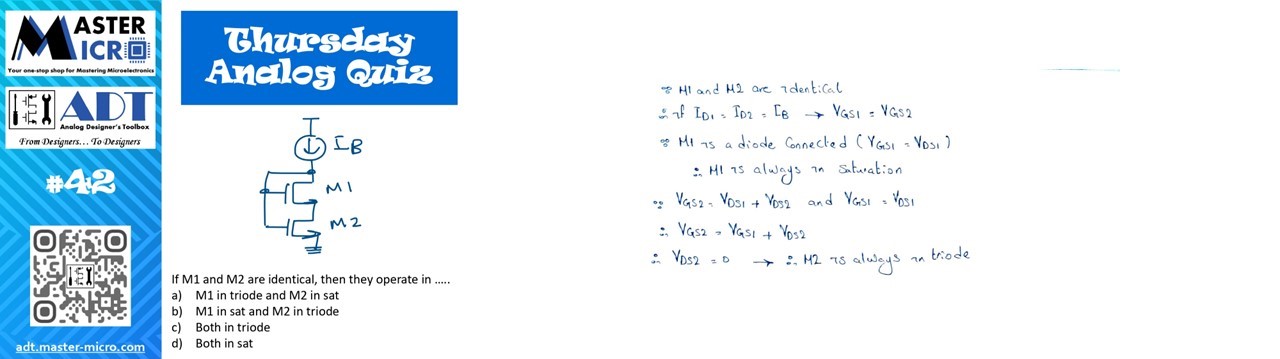 MASTER
MICRO
Your one-stop shop for Mastering Microelectronics
ADT
Analog Designer's Toolbox
From Designers... To Designers
#42
adt.master-micro.com
Thursday
Analog Quiz
IB
M1
M2
If M1 and M2 are identical, then they operate in .....
a) M1 in triode and M2 in sat
b) M1 in sat and M2 in triode
c) Both in triode
d) Both in sat
∵ M1 and M2 are identical
∴ if ID1 = ID2 = IB → VGS1 = VGS2
∵ M1 is a diode connected (VGS1 = VDS1)
∴ M1 is always in saturation
∵ VGS2 = VDS1 + VDS2 and VGS1 = VDS1
∴ VGS2 = VGS1 + VDS2
∴ VDS2 = 0 → ∴ M2 is always in triode